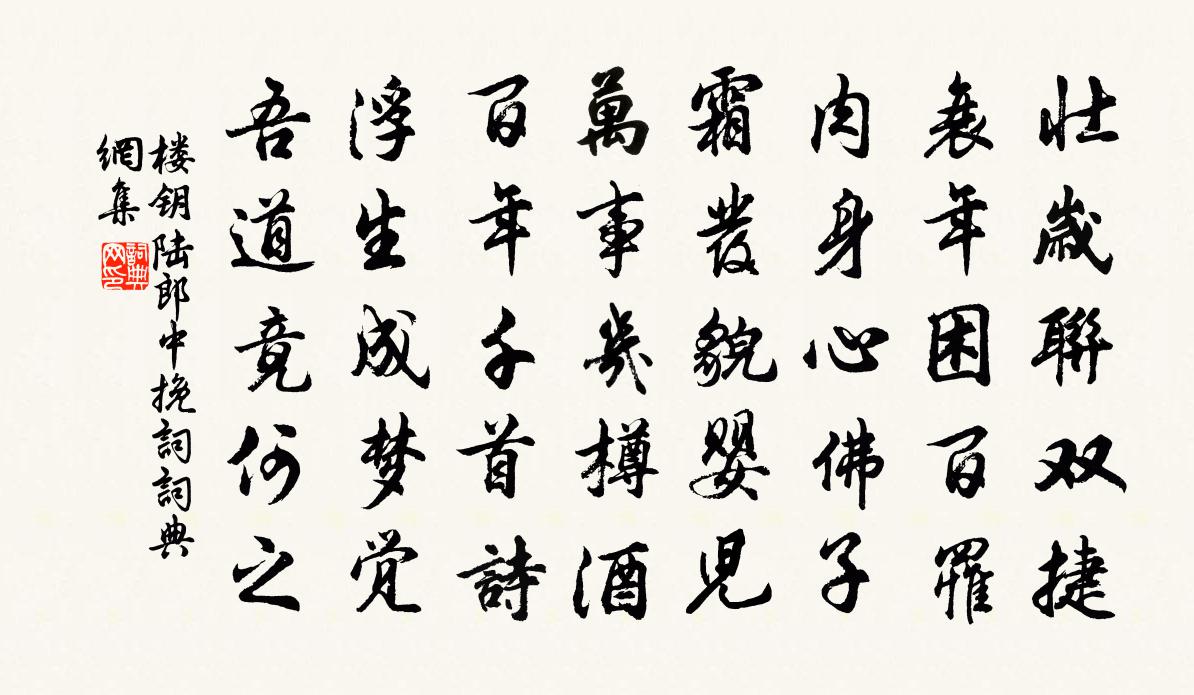 壮歲聯双捷
衰年困百罹
肉身心佛子
霜发貌婴児
萬事幾樽酒
百年千首詩
浮生成梦觉
吾道竟何之
楼钥陆郎中挽詞詞典
網集
詞典网印